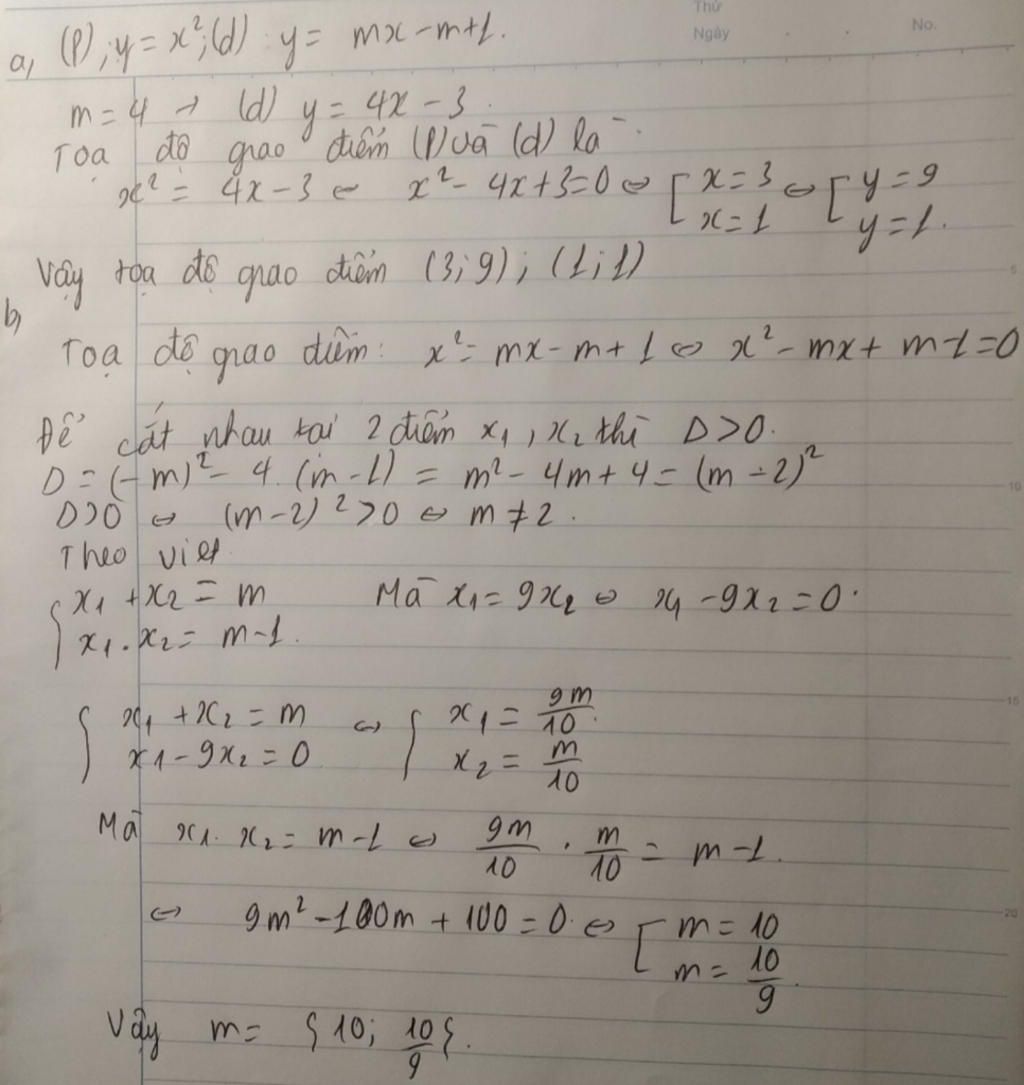 Thứ
Ngày
No.
a, (P); y = x²; (d) : y = mx - m + 1.
m = 4 → (d) y = 4x - 3.
Toạ độ giao điểm (P) và (d) là:
x² = 4x - 3 ⇔ x² - 4x + 3 = 0 ⇔ [ x = 3 ⇔ [ y = 9
x = 1 y = 1.
Vậy tọa độ giao điểm (3; 9); (1; 1)
b,
Toạ độ giao điểm: x² = mx - m + 1 ⇔ x² - mx + m - 1 = 0
Để cắt nhau tại 2 điểm x₁, x₂ thì Δ > 0.
Δ = (-m)² - 4.(m - 1) = m² - 4m + 4 = (m - 2)²
Δ > 0 ⇔ (m - 2)² > 0 ⇔ m ≠ 2.
Theo viet
{ x₁ + x₂ = m Mà x₁ = 9x₂ ⇔ x₁ - 9x₂ = 0.
x₁ . x₂ = m - 1.
{ x₁ + x₂ = m ⇔ { x₁ = 9m/10.
x₁ - 9x₂ = 0 x₂ = m/10
Mà x₁. x₂ = m - 1 ⇔ 9m/10 . m/10 = m - 1.
⇔ 9m² - 100m + 100 = 0. ⇔ [ m = 10
m = 10/9.
Vậy m = { 10; 10/9 }.
5
10
15
20